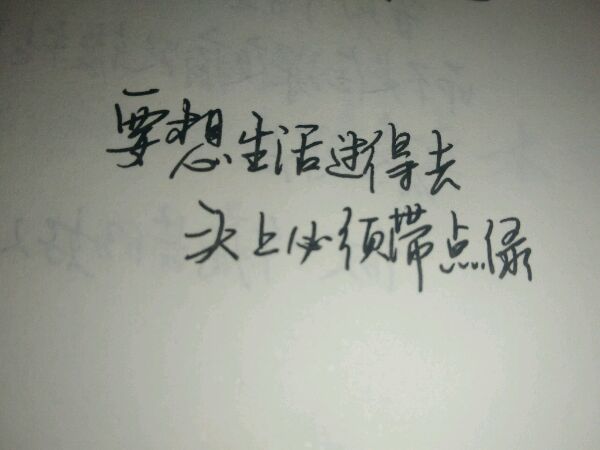 要想生活过得去
头上必须带点绿